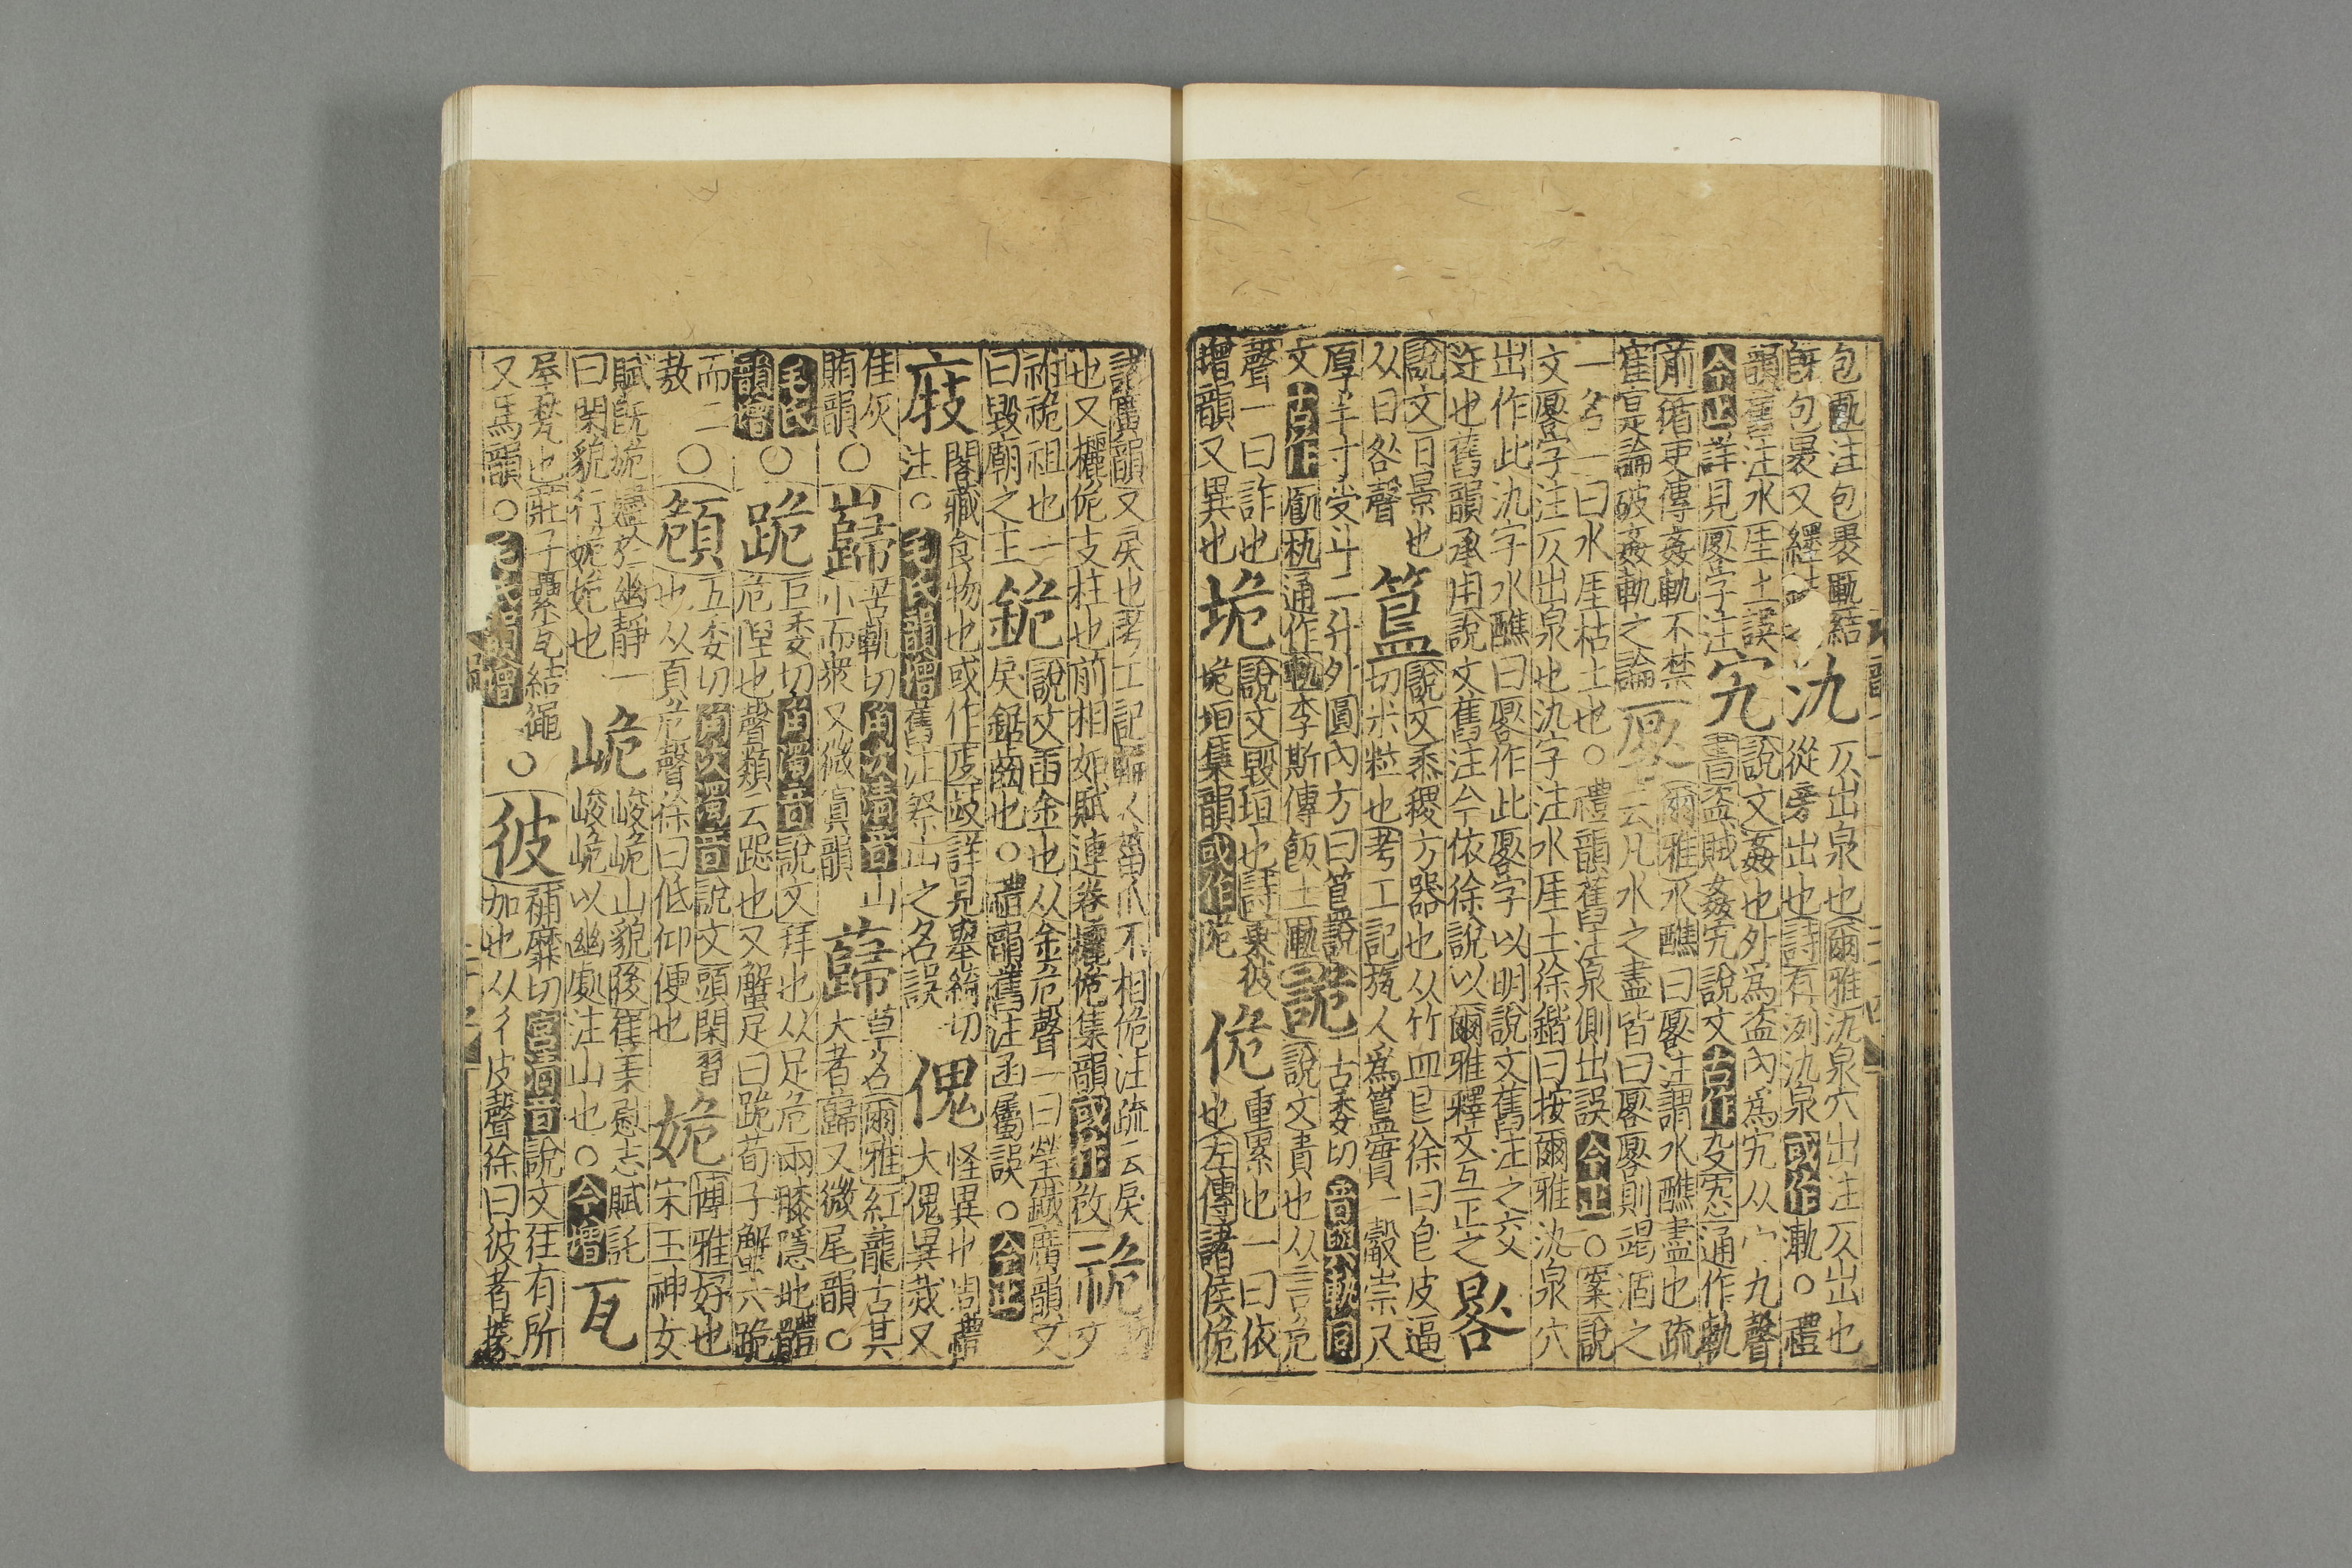 包匭注包裹匭結
旣包裹又纏結 氿 仄出泉也爾雅氿泉穴出注仄出也
從旁出也詩有洌氿泉或作漸○禮
韻舊注水厓土誤 宄 說文姦也外爲盗內爲宄从宀九聲
今正詳見厬字注 書寇賊姦宄說文古作㕤㝌通作軌
前循吏傳姦軌不禁
寉寔論破姦軌之論 厬 爾雅水醮曰厬注謂水醮盡也疏
云凡水之盡皆曰厬厬則竭涸之
一名一曰水厓枯土也○禮韻舊注泉側出誤今正○案說
文厬字注仄出泉也氿字注水厓土徐鍇曰按爾雅氿泉穴
出作此氿字水醮曰厬作此厬字以明說文舊注之交
迕也舊韻承用說文舊注今依徐說以爾雅釋文互正之 晷
說文日景也
从日咎聲 簋 說文黍稷方器也从竹皿皀徐曰皀皮逼
切米粒也考工記瓬人爲簋實一觳崇尺
厚半寸脣寸受斗二升外圓內方曰簋說
文古作匭朹通作軌李斯傳飯土匭 詭 古委切音與軌同
說文責也从言危
聲一曰詐也
增韻又異也 垝 說文毀垣也詩乘彼
垝垣集韻或作陒 佹 重累也一曰依
也左傳諸侯佹
說廣韻又戾也考工記輪人菑爪不相佹注疏云戾
也又欐佹支柱也前相如賦連卷欐佹集韻或作攱 祪 說
文
祔祪祖也一
曰毀廟之主 鉋 說文臿金也从金危聲一曰瑩鐵廣韻文
戾鋸齒也○禮韻舊注臿屬誤○今正
庪 閣藏食物也或作庋攱詳見舉綺切
注○毛氏韻增舊注祭山之名誤 傀 怪異也周禮
大傀異烖又
隹灰
賄韻○ 巋 苦軌切角次清音山
小而衆又微寘韻 蘬 草名爾雅紅蘢古其
大者蘬又微尾韻○
毛氏
韻增○ 跪 巨委切角濁音說文拜也从足危兩膝隱地體
危隉也聲類云跽也又蟹足曰跪荀子蟹六跪
而二
敖○ 頠 五委切角次濁音說文頭閑習
也从頁危聲徐曰低仰便也 姽 博雅好也
宋玉神女
賦旣姽嫿於幽靜一
曰閑貌行姽姽也 峗 峻峗山貌後崔篆慰志賦託
峻峗以幽處注山也○今增 瓦
屋甍也莊子纍瓦結繩
又馬韻○毛氏韻增○ 彼 補靡切宮清音說文往有所
加也从彳皮聲徐曰彼者據